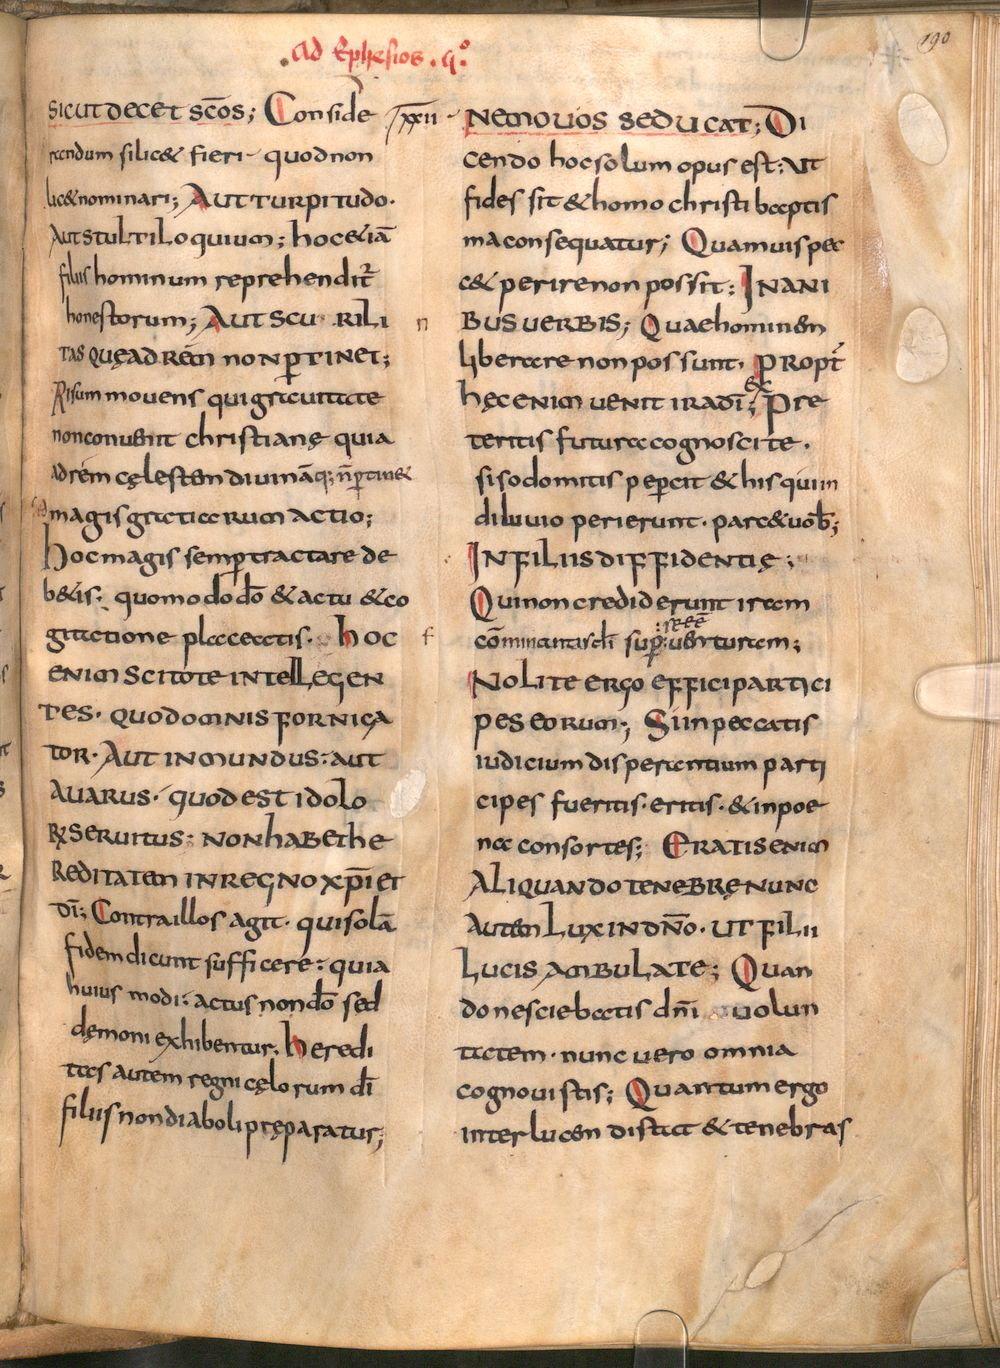 190
.Ad Ephesios . q°.
SICUT DECET SC̄OS; Conside
randum sil ic& fieri quod non
lic& nominari; AUT TURPITUDO.
AUT STULTILOQUIUM; hoc &iā
filiis hominum reprehendit̄
honestorum; AUT SCURILI
TAS QUĘ AD REM NON PTINET;
Risum movens qui gravitate
non convenit christianę quia
ad rem cęlestem divināq; n̄ ptin&
magis gratiarum actio;
hoc magis semp tractare de
b&is; quomodo dō & actu & co
gitatione placeatis. hoc
ENIM SCITOTE INTELLEGEN
TES. QUOD OMNIS FORNICA
TOR. AUT INMUNDUS: AUT
AVARUS. QUOD EST IDOLO
RŪ SERVITUS: NON HABET HE
REDITATEM IN REGNO XP̄I ET
DĪ; Contra illos agit. qui solā
fidem dicunt sufficere: quia
huius modi: actus non dō sed
dęmoni exhibentur. heredi
tas autem regni cęlorum dī
filiis non diaboli pręparatur;
XXII
NEMO UOS SEDUCAT; Di
cendo hoc solum opus est: ut
fides sit & homo christi baptis
ma consequatur; Quamuis pec
c& perire non possit; INANI
BUS UERBIS; Quae hominem
liberare non possunt. PROPT̄
HĘC ENIM UENIT IRA DĪ; ex Pre
teritis futura cognoscite.
si sodomitis pepercit & his qui in
diluuio perierunt. parc& uob̄;
IN FILIIS DIFFIDENTIĘ;
Qui non crediderunt iram
cōminantis dī sup se ēē uenturam;
NOLITE ERGO EFFICI PARTICI
PES EORUM; Si in peccatis
iudicium dispertentium parti
cipes fueritis. eritis. & in poe
na consortes; ERATIS ENIM
ALIQUANDO TENEBRĘ NUNC
AUTEM LUX IN DN̄O. UT FILII
LUCIS AMBULATE; Quan
do nesciebatis dn̄i uolun
tatem. nunc uero omnia
cognouistis; Quantum ergo
inter lucem distat & tenebras